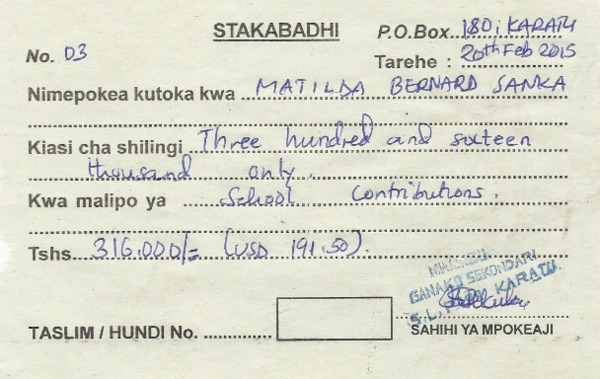 STAKABADHI
P.O.Box 180, KARATU
No. 03
Tarehe : 20th Feb 2015
Nimepokea kutoka kwa MATILDA BERNARD SANKA
Kiasi cha shilingi Three hundred and sixteen
thousand only.
Kwa malipo ya School Contributions.
Tshs. 316.000/= (USD 191.50).
GANAKO SEKONDARI
S.L.P. KARATU.
TASLIM / HUNDI No.
SAHIHI YA MPOKEAJI